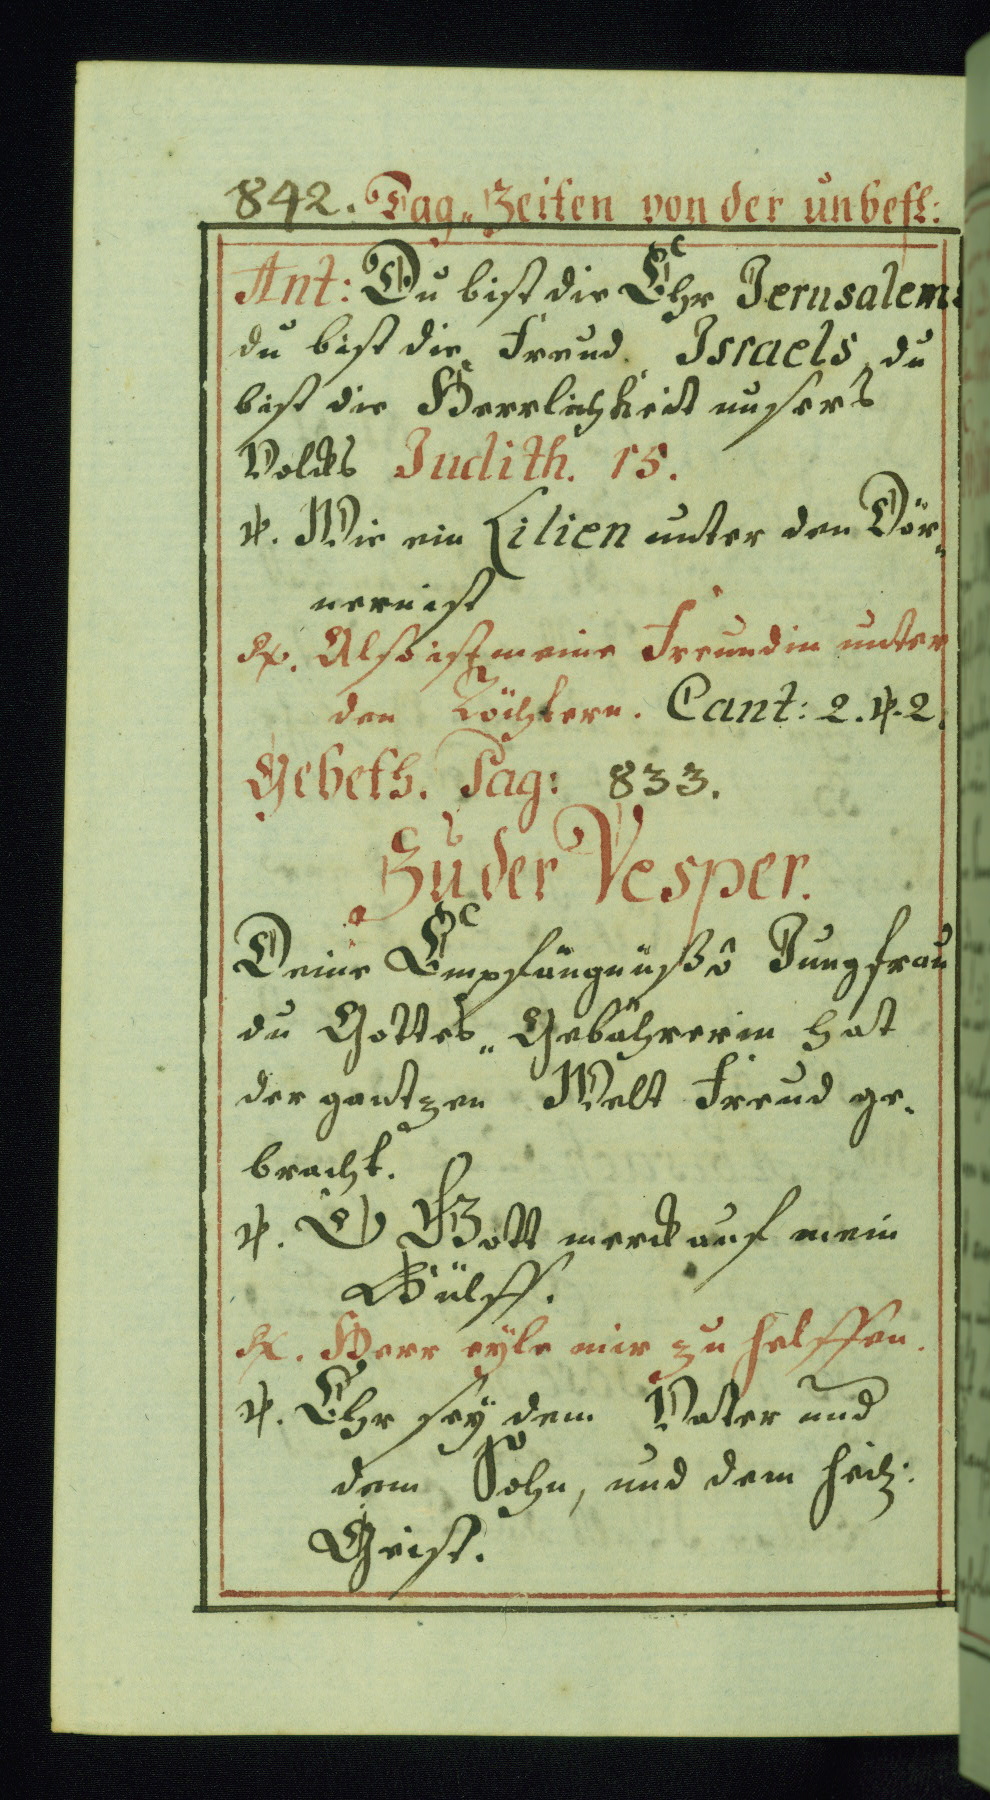 842. Tag„Zeiten von der unbefl:
Ant: Du bist die Ehr Jerusalems
du bist die Freud Israels, du
bist die Herrlichkeit unsers
Volcks Judith. 15.
℣. Wie ein Lilien unter den Dör„
nern ist
℟. Also ist meine Freundin unter
den Töchtern. Cant: 2. ℣. 2.
Gebeth. Pag: 833.
Zu der Vesper.
Deine Empfängnüß ô Jungfrau
du Gottes„Gebährerin hat
der gantzen Welt Freud ge„
bracht.
℣. O Gott merck auf mein
Hülff.
℟. Herr eÿle mir zu helffen.
℣. Ehr seÿ dem Vater und
dem Sohn, und dem heil:
Geist.